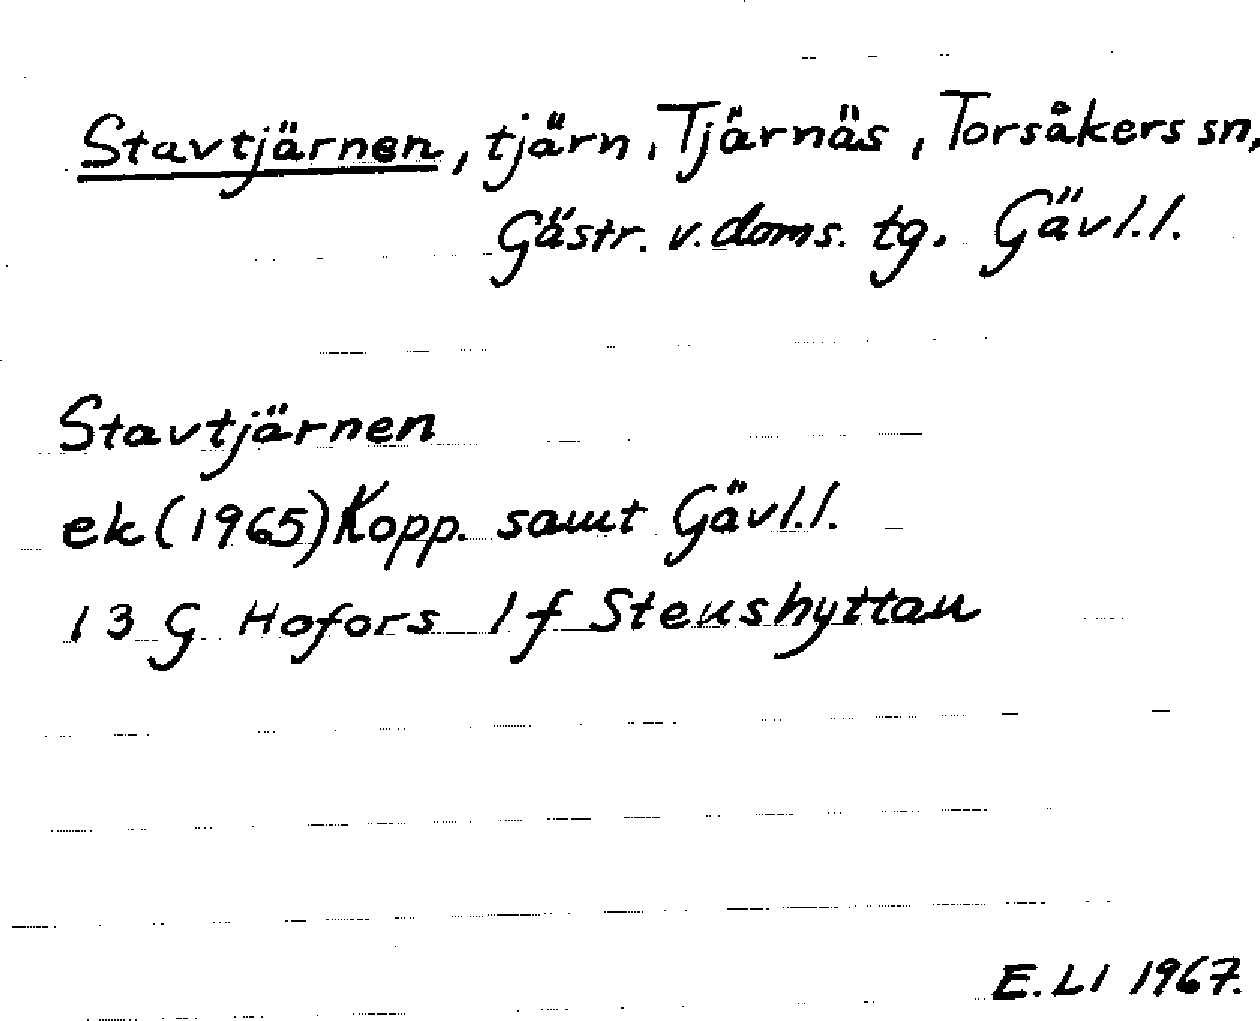 Stavtjärnen, tjärn, Tjärnäs, Torsåkers sn,
Gästr. v. doms. tg. Gävl.l.
Stavtjärnen
ek (1965) Kopp. samt Gävl.l.
13 G Hofors 1 f Stenshyttan
E.LI 1967.